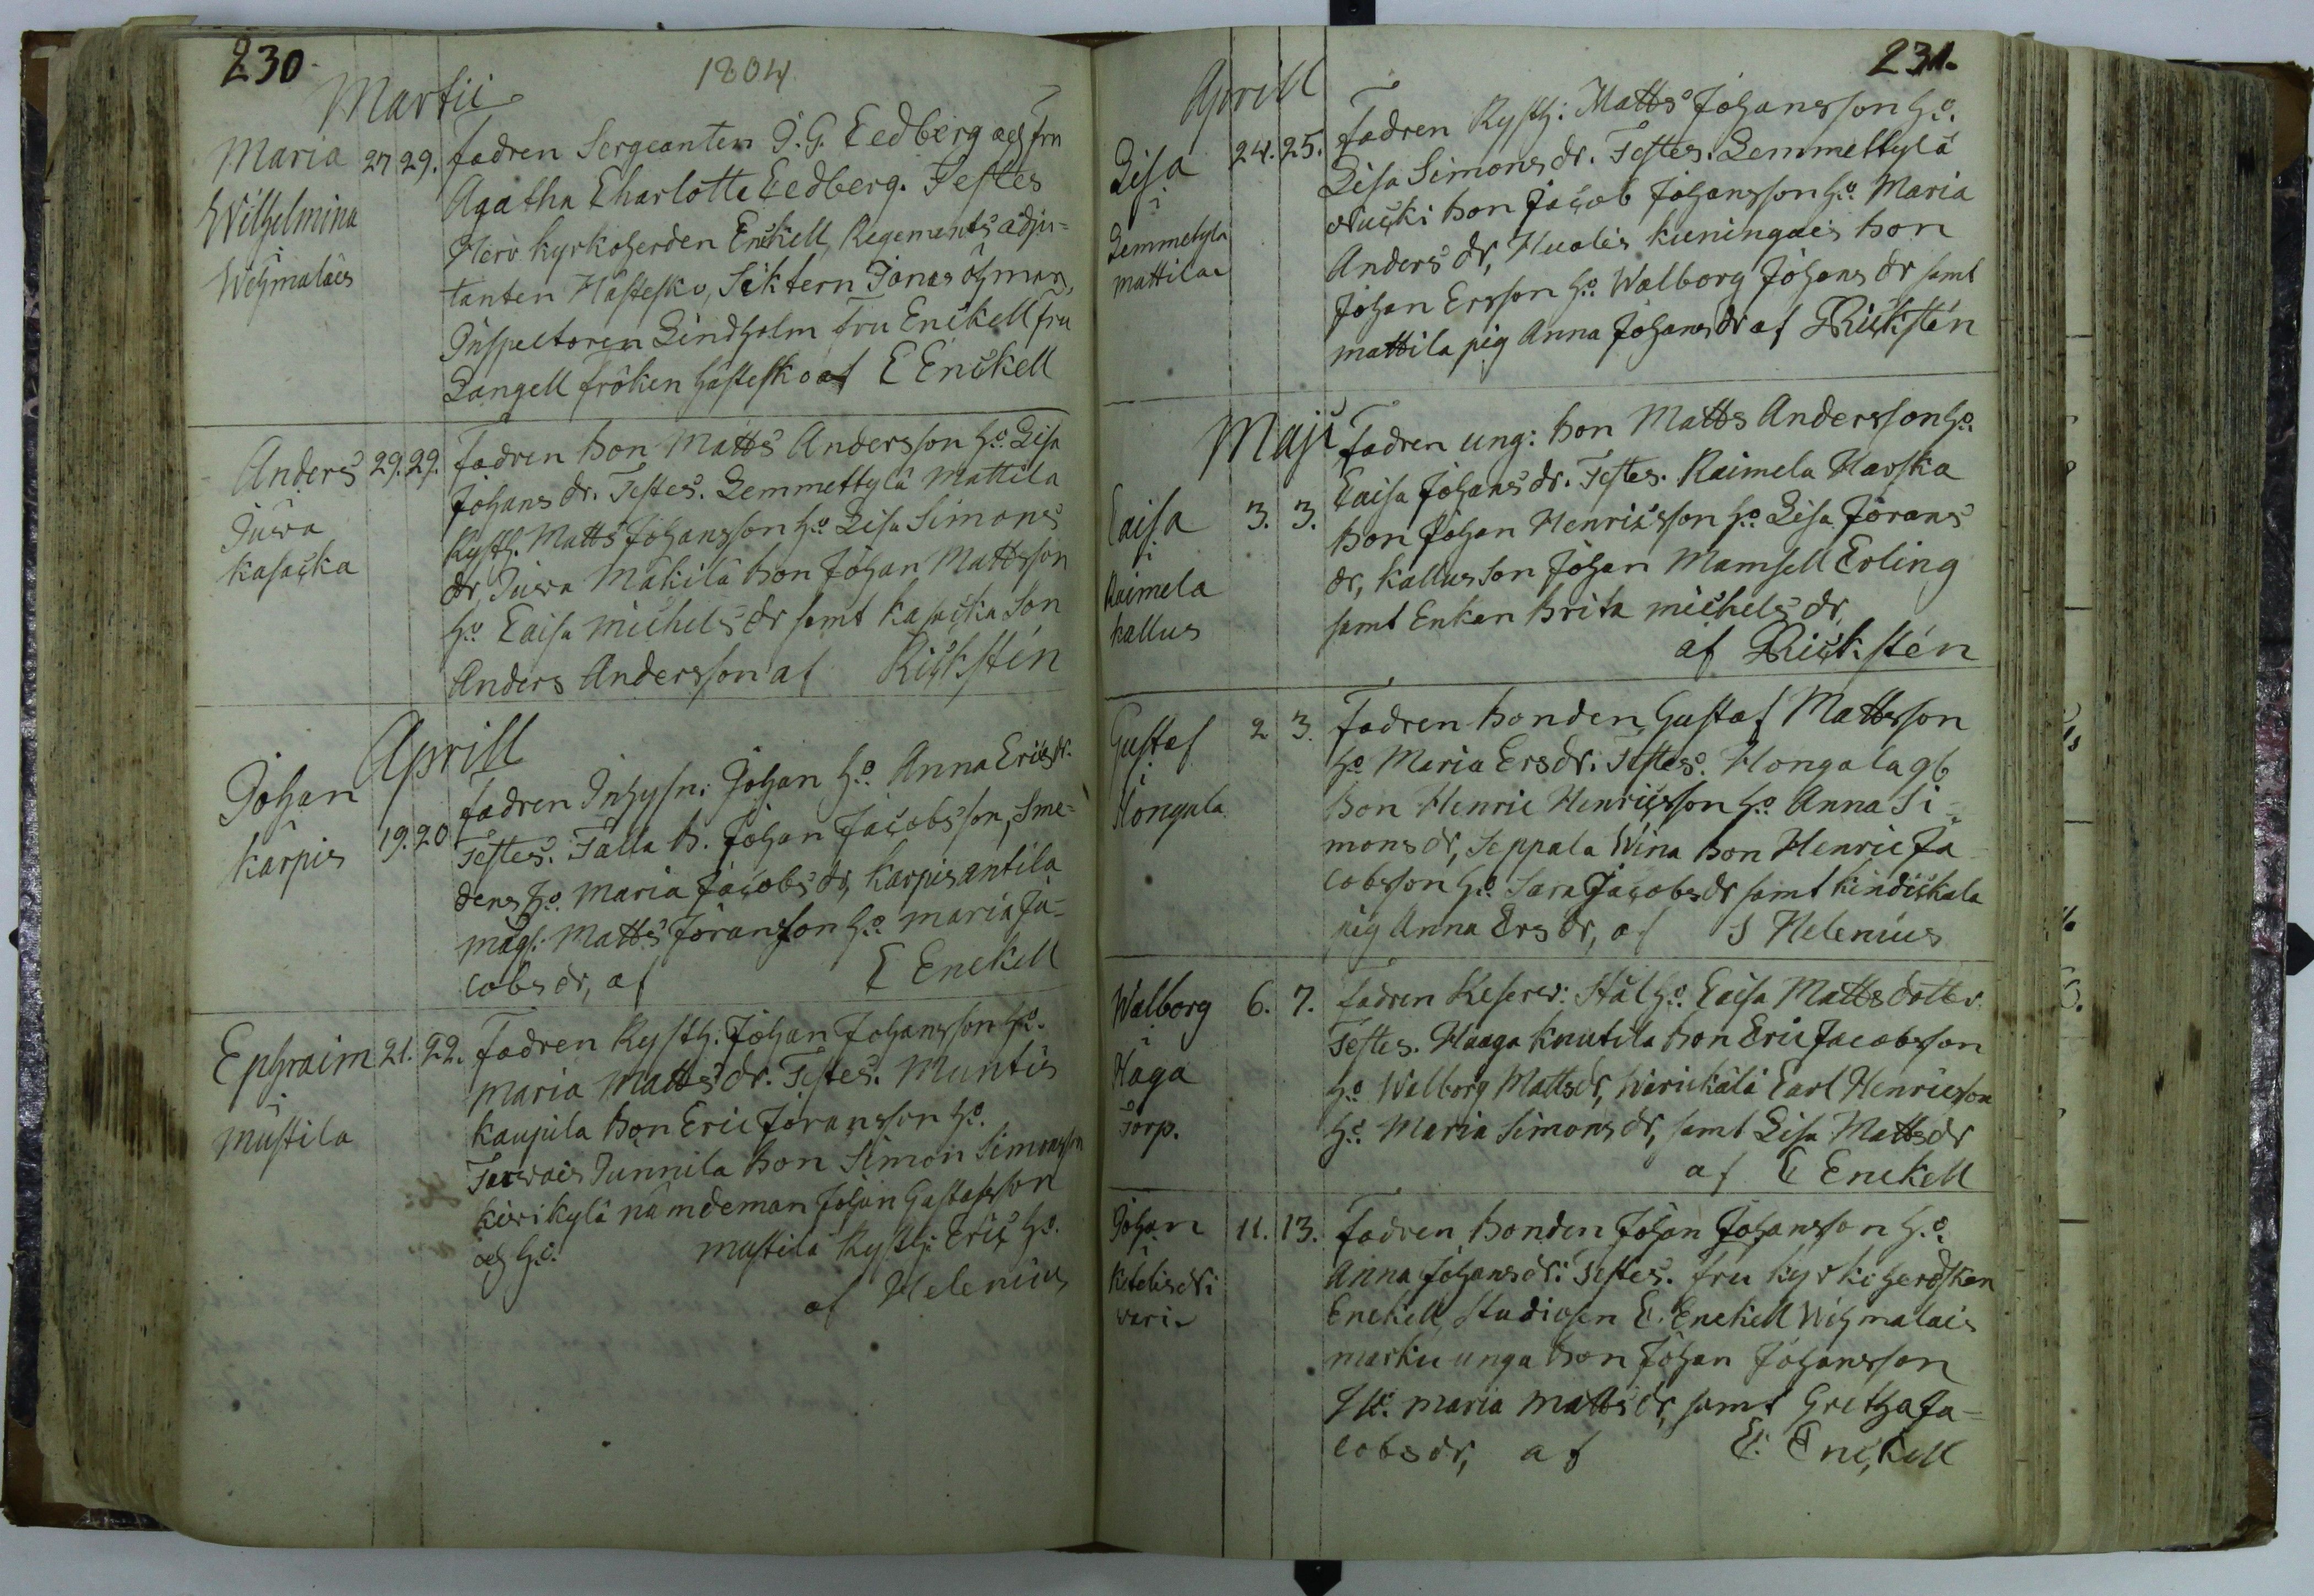 230
1804
Martii
Maria 27 29. fadren Sergeanten P. G. Cedberg och fru
Wilhelmina Agatha Charlotta Cedberg. Testes
Wehmalais Herr kyrkoherden Enckell, Regements adju=
tanten Hästesko, Jonas öhman,
Inspectoren Lindholm fru Enckell fru
Langell fröken hästesko af E Enckell
Anders 29. 29. fadren bon Matts Andersson ho Lisa
Juva Johans dr. Testes. Lemmettylä Mattila
kasacka Rysth. Matts Johansson ho Lisa Simons
dr, Juva Mäkilä bon Johan Mattsson
ho Caisa michels dr samt kasacka Son
Anders Andersson af Rickstén
Aprill
Johan 19. 20 fadren Inhysn: Johan ho Anna Ericsdr.
karpis Testes. Talla b. Johan Jacobsson, Sme=
dens ho Maria Jacobs dr, karpis antila
mågs: Matts Jöransson ho maria Ja=
cobs dr, af E Enckell
Ephraim 21. 22. Fadren Rysth: Johan Johansson ho
i maria Matts dr. Testes. Muntis
mustila kaupila bon Eric Jöransson ho.
Tarvais Junnila bon Simon Simonsson
kirikylä nämdeman Johan Gustafsson
och ho. mustila Rysth: Eric ho.
af Helenius
231.
Aprill
Lisa 24. 25. Fadren Rysth: Matts Johansson ho.
i Lisa Simons dr. Testes. Lemmettylä
Lemmetyla Nucki bon Jacob Johansson ho Maria
mattila Anders dr, Hualis kuningais bon
Johan Ersson ho Walborg Johans dr samt
mattila pig Anna Johans dr af Rickstén
Maji
Fadren ung: bon Matts Andersson ho
Caisa 3. 3. Caisa Johans dr. Testes. Raimela Harska
i bon Johan Henricsson ho Lisa Jörans
Raimela dr, kallus son Johan Mamsell Erling
kallus samt Enkan brita michels dr,
af Rickstén
Gustaf 2 3. Fadren bonden Gustaf Mattsson
i ho Maria Ers dr: Testes. Hongola gb
Hongola bon Henric Henricsson ho Anna Si=
mons dr, Seppala Wina bon Henric Ja
cobsson ho Sara Jacobs dr samt kindickala
pig Anna Ers dr, af S Helenius
Walborg 6. 7. fadren Reserv: Stål ho Caisa Matts dotter.
i Testes. Haaga knutila bon Eric Jacobsson
Haga ho Walborg Matts dr, Carl Henricsson
Torp. ho Maria Simons dr, samt Lisa Matts dr
af E Enckell
Johan 11. 13. Fadren bonden Johan Johansson ho
i Anna Johans dr: Testes. fru kyrkoherdskan
Enckell, Studiosen E. Enckell Wehmalais
wari marku unga bon Johan Johansson
Ho. maria matts dr, samt Gretha Ja=
cobs dr, af E. Enckell